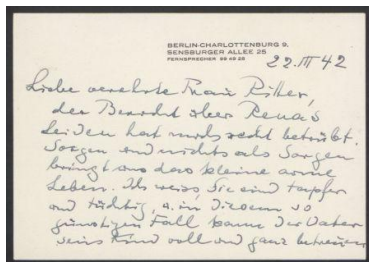 BERLIN-CHARLOTTENBURG 9,
SENSBURGER ALLEE 25
FERNSPRECHER 99 42 25
22. III 42
Liebe verehrte Frau Ritter,
der Bericht über Renas
Leiden hat mich recht betrübt.
Sorgen und nichts als Sorgen
bringt uns das kleine arme
Leben. Ich weiss Sie sind tapfer
und tüchtig, u. in diesem so
günstigen Fall kann der Vater
sein Kind voll und ganz betreuen